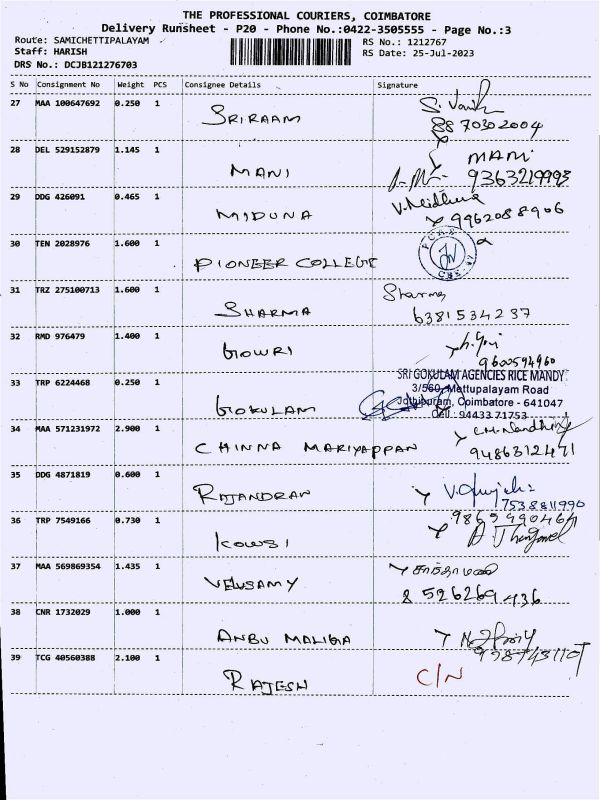 THE PROFESSIONAL COURIERS, COIMBATORE
Delivery Runsheet - P20 - Phone No.:0422-3505555 - Page No.:3
Route: SAMICHETTIPALAYAM
Staff: HARISH
DRS No.: DCJB121276703
RS No.: 1212767
RS Date: 25-Jul-2023
S No Consignment No Weight PCS Consignee Details Signature
27 MAA 100647692 0.250 1 SRIRAAM
8870302004
28 DEL 529152879 1.145 1 MANI MANI
9363219993
29 DDG 426091 0.465 1 MIDUNA V. Midhuna
9962088906
30 TEN 2028976 1.600 1 PIONEER COLLEGE
31 TRZ 275100713 1.600 1 SHARMA Sharma
6381534237
32 RMD 976479 1.400 1 GOWRI
9600594960
33 TRP 6224468 0.250 1 GOKULAM
SRI GOKULAM AGENCIES RICE MANDY
3/560, Mettupalayam Road
Jothipuram, Coimbatore - 641047
Cell : 94433 71753
34 MAA 571231972 2.900 1 CHINNA MARIYAPPAN
9486312471
35 DDG 4871819 0.600 1 RAJANDRAN
7538811990
36 TRP 7549166 0.730 1 KOWSI
37 MAA 569869354 1.435 1 VELUSAMY
8526269436
38 CNR 1732029 1.000 1 ANBU MALIGA
39 TCG 40560388 2.100 1 RAJESH C/N